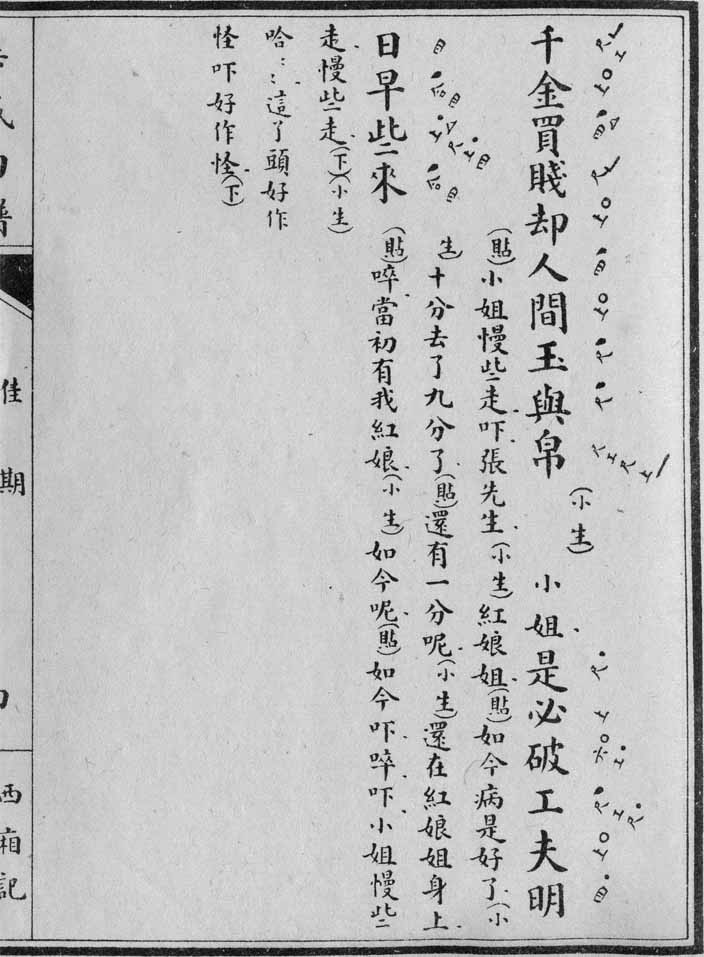 千金買賤却人間玉與帛(小生)小姐是必破工夫明
(貼)小姐慢些走吓張先生(小生)紅娘姐(貼)如今病是好了(小
生)十分去了九分了(貼)還有一分呢(小生)還在紅娘姐身上
日早些來(貼)啐當初有我紅娘(小生)如今呢(貼)如今吓啐吓小姐慢些
走慢些走(下)(小生)
哈︰︰這丫頭好作
怪吓好作怪(下)
佳期
西廂記